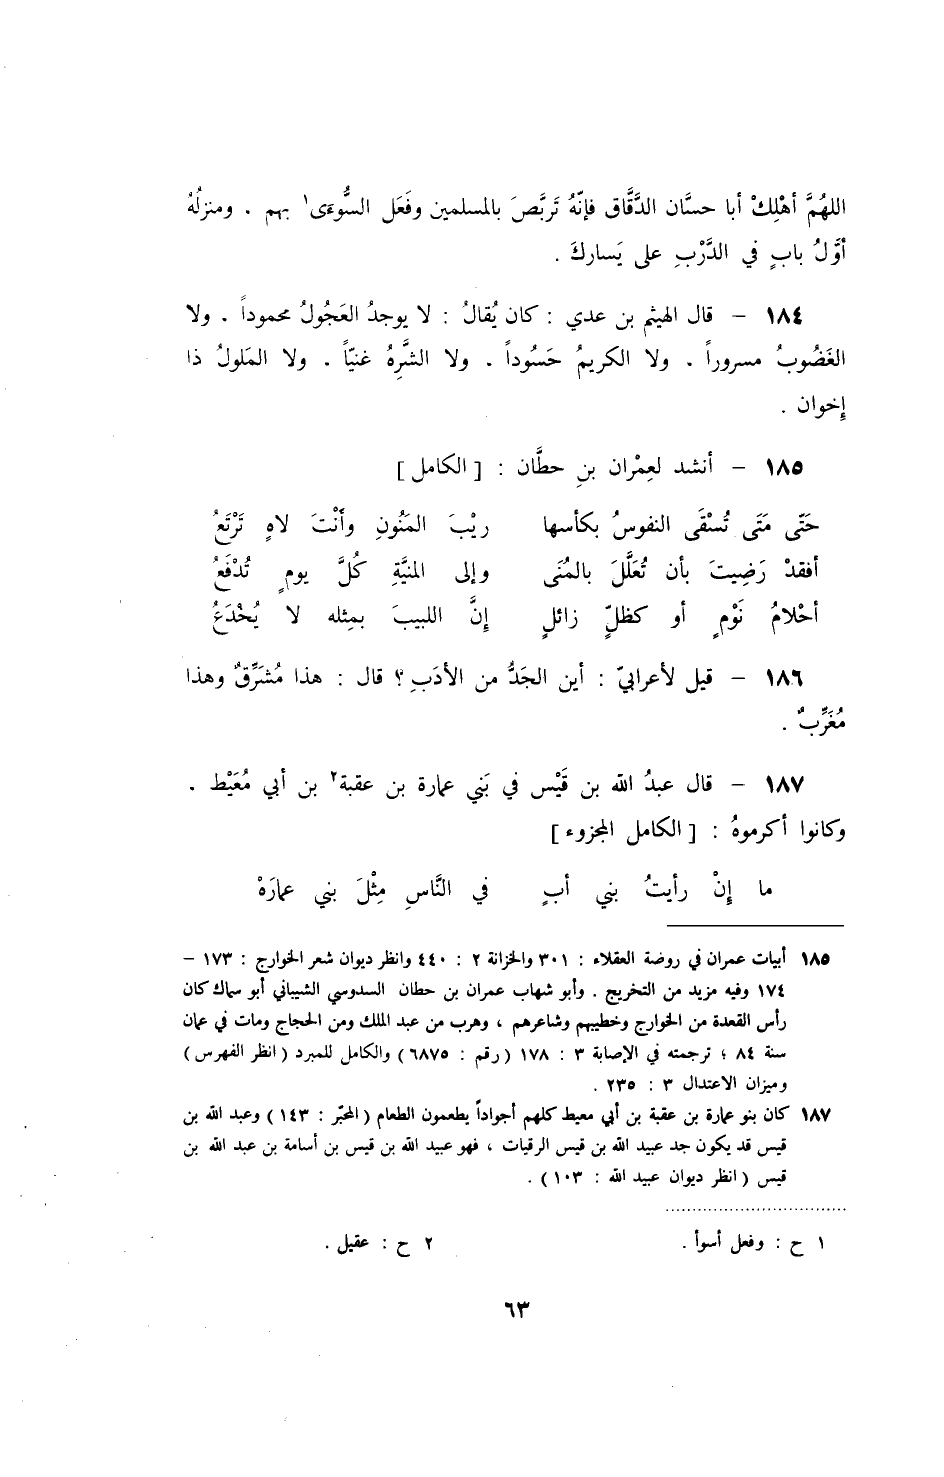 اللهُمَّ أهْلِكْ أبا حسَّان الدَّقَّاق فإنّهُ تَربَّصَ بالمسلمين وفَعَل السُّوءَى١ بهم . ومنزلُهُ
أوَّلُ بابٍ في الدَّرْبِ على يَسارِكَ .
١٨٤ – قال الهيثم بن عدي : كان يُقالُ : لا يوجدُ العَجُولُ محموداً . ولا
الغَضُوبُ مسروراً . ولا الكريمُ حَسُوداً . ولا الشَّرِهُ غنيّاً . ولا المَلولُ ذا
إخوان .
١٨٥ – أنشد لعِمْران بنِ حطَّان : [ الكامل ]
حَتّى مَتَى تُسْقَى النفوسُ بكأسها رَيْبَ المَنُونِ وأَنْتَ لاهٍ تَرْتَعُ
أفقدْ رَضِيتَ بأن تُعَلَّلَ بالمُنَى وإلى المنيَّةِ كُلَّ يومٍ تُدْفَعُ
أحْلامُ نَوْمٍ أو كظلّ زائلٍ إنَّ اللبيبَ بمِثله لا يُخْدَعُ
١٨٦ – قيل لأعرابيّ : أين الجَدُّ من الأدَبِ ؟ قال : هذا مُشَرِّقٌ وهذا
مُغَرِّبٌ .
١٨٧ – قال عبدُ الله بن قَيْس في بَني عمارة بن عقبة٢ بن أبي مُعَيْط .
وكانوا أكرموهُ : [ الكامل المجزوء ]
ما إنْ رأيتُ بني أبٍ في النَّاسِ مِثْلَ بني عمارَهْ
١٨٥ أبيات عمران في روضة العقلاء : ٣٠١ والخزانة ٢ : ٤٤٠ وانظر ديوان شعر الخوارج : ١٧٣ –
١٧٤ وفيه مزيد من التخريج . وأبو شهاب عمران بن حطان السدوسي الشيباني أبو سماك كان
رأس القعدة من الخوارج وخطيبهم وشاعرهم ، وهرب من عبد الملك ومن الحجاج ومات في عمان
سنة ٨٤ ؛ ترجمته في الإصابة ٣ : ١٧٨ ( رقم : ٦٨٧٥ ) والكامل للمبرد ( انظر الفهرس )
وميزان الاعتدال ٣ : ٢٣٥ .
١٨٧ كان بنو عمارة بن عقبة بن أبي معيط كلهم أجواداً يطعمون الطعام ( المحبّر : ١٤٣ ) وعبد الله بن
قيس قد يكون جد عبيد الله بن قيس الرقيات ، فهو عبيد الله بن قيس بن أسامة بن عبد الله بن
قيس ( انظر ديوان عبيد الله : ١٠٣ ) .
١ ح : وفعل أسوأ . ٢ ح : عقيل .
٦٣